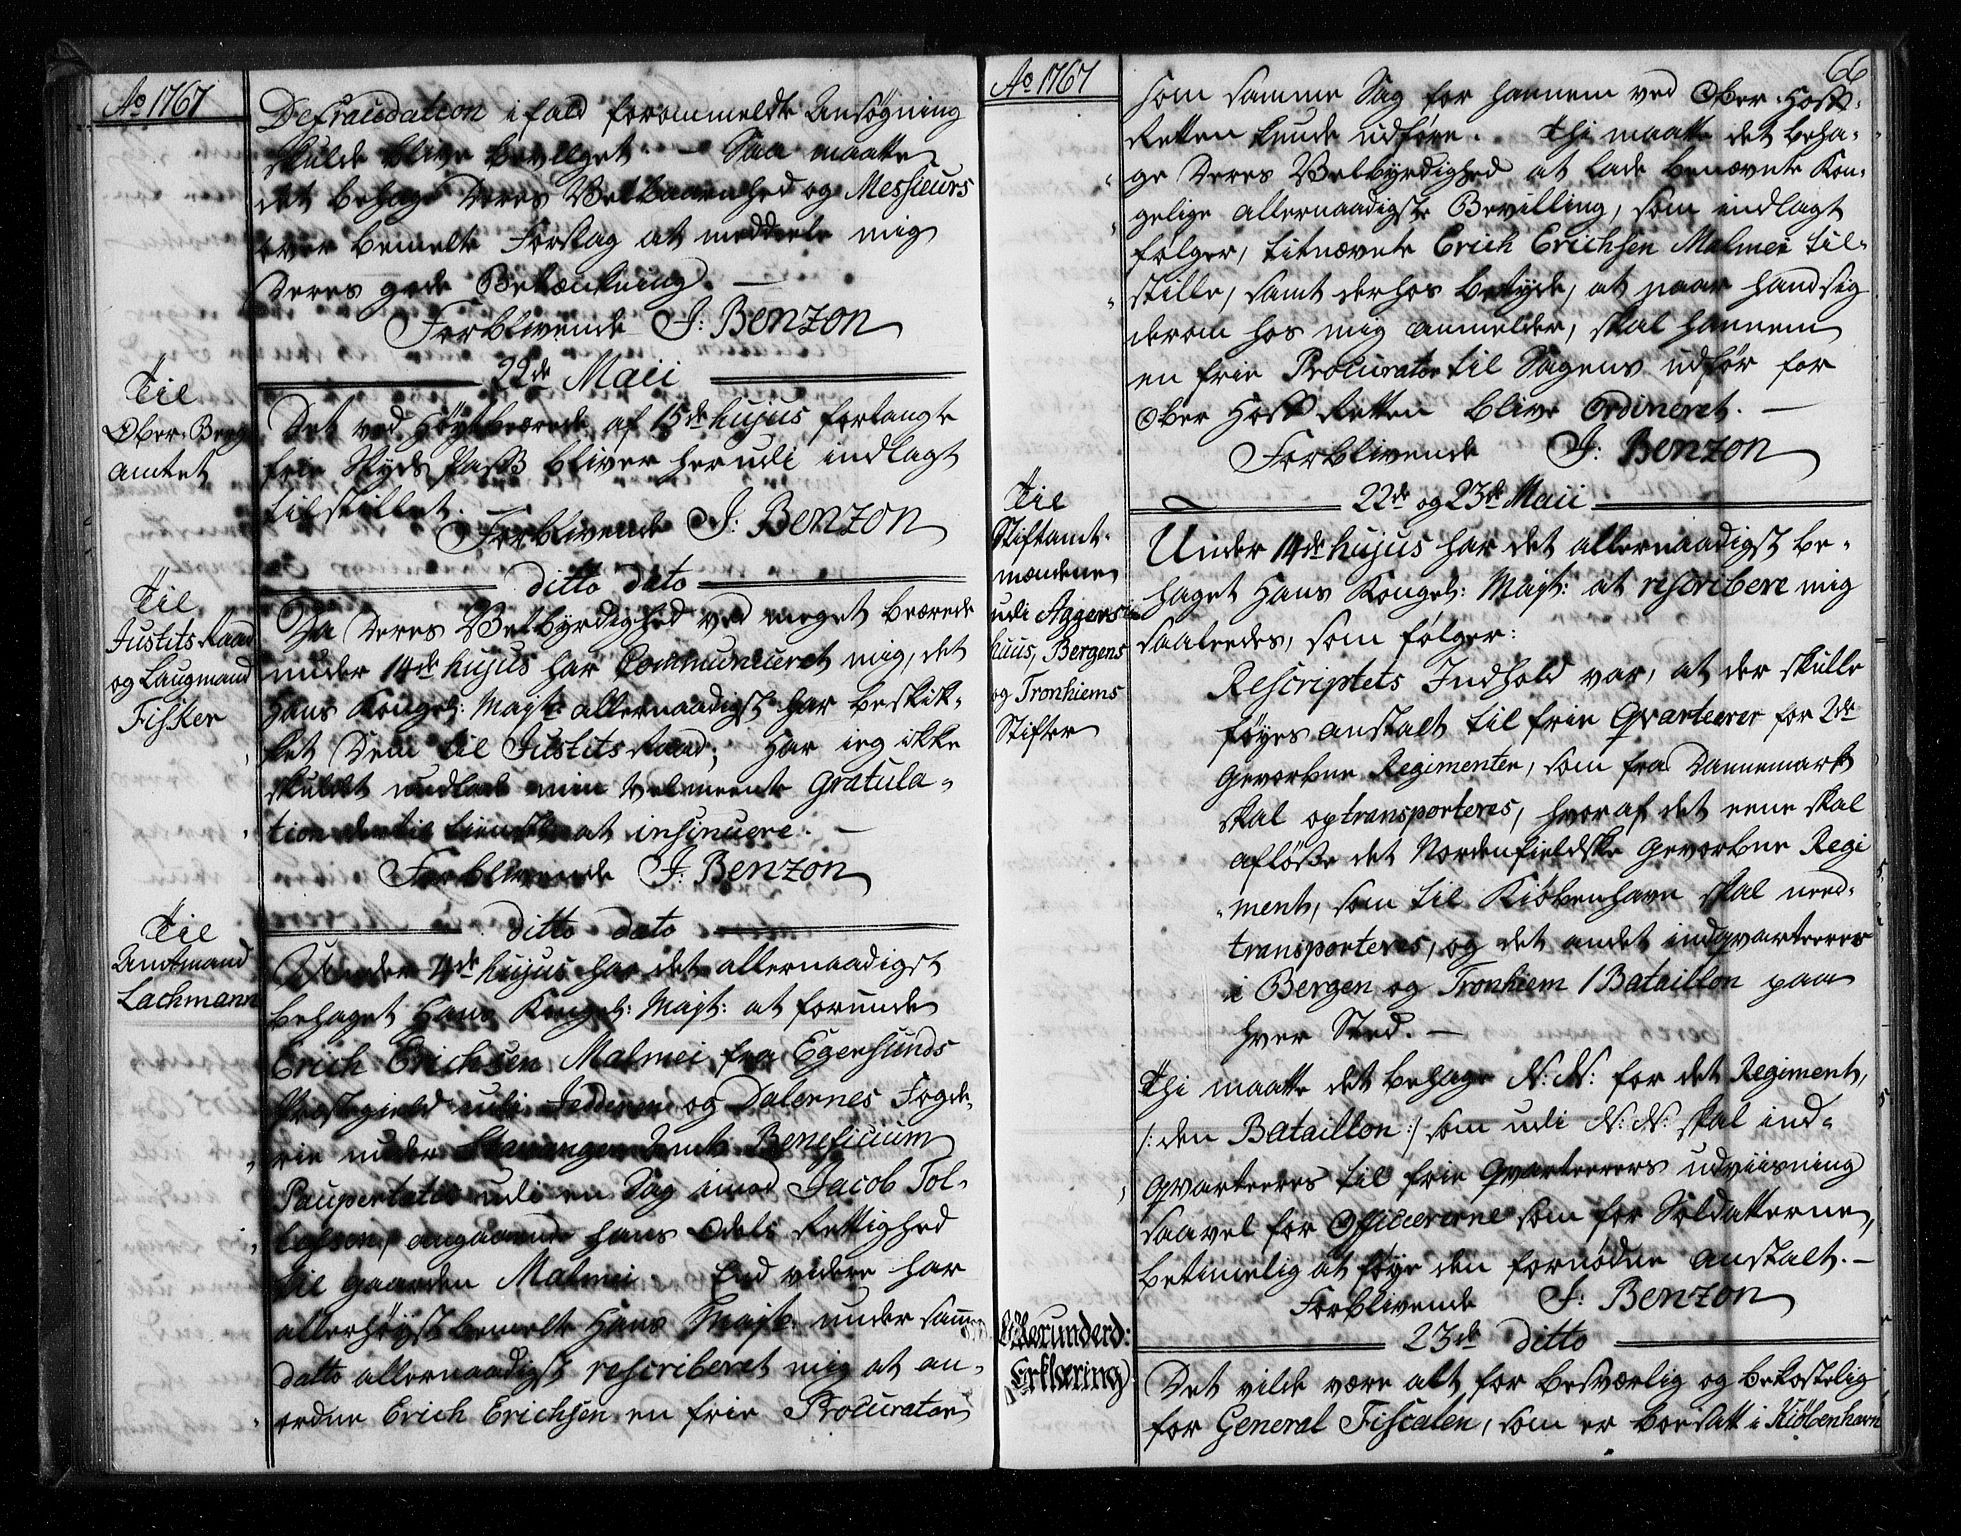 Ao 1767
Defraudation ifald forommeldte Ansøgning
skulde blive bevilget. – Saa maatte
det behage Deres Velbaarenhed og Messieurs
over bemelte Forslag at meddeele mig
Deres gode Betænkning. –
Forblivende J: Benzon
22de Maii
Til
Ober-Berg-
amtet
Det ved Høystbeærede af 15de hujus forlangte
frie Skyds Pass bliver herudi indlagt
tilstillet.
Forblivende J: Benzon
ditto dato
Til
Justits Raad
og Laugmand
Fisker
Da Deres Velbyrdighed ved meget beærede
under 14de hujus har Communiceret mig, det
Hans Kongel: Majt: allernaadigst har beskik-
ket Dem til Justits Raad; Har ieg ikke
skullet undlade min velmeente Gratula-
tion dertil tienstl: at insinuere. –
Forblivende J: Benzon
ditto dato
Til
Amtmand
Lachmann
Under 4de hujus har det allernaadigst
behaget Hans Kongel: Majt: at forunde
Erich Erichsen Malmei fra Egersunds
Præstegield udi Jedderen og Dalernes Fogde-
rie under Stavanger Amt Beneficium
Paupertatis udi en Sag imod Jacob Tol-
lefsen, angaaende hans Odels Rettighed
til gaarden Malmei. End videre har
allerhøystbemelte Hans Majt: under samme
Datto allernaadigst rescriberet mig at an-
ordne Erich Erichsen en frie Procurator
66
Ao 1767
som samme Sag for hannem ved Ober-Hoff-
Retten kunde udføre. Thi maatte det beha-
ge Deres Velbyrdighed at lade benævnte Kon-
gelige allernaadigste Bevilling, som indlagt
følger, bitnævnte Erich Erichsen Malmei til-
stille, samt derhos betyde, at naar hand sig
derom hos mig anmelder, skal hannem
en frie Procurator til Sagens udfør for
Ober Hoff Retten blive Ordineret. –
Forblivende J: Benzon
22de og 23de Maii
Til
Stiftamt-
mændene
udi Aggers-
huus, Bergens
og Tronhiems
Stifter
Under 14de hujus har det allernaadigst be-
haget Hans Kongel: Majt: at rescribere mig
saaledes, som følger:
Rescriptets Indhold var, at der skulle
føyes anstalt til frie Qvarteerer for 2de
Gevorbne Regimenter, som fra Dannemark
skal optransporteres, hvoraf det eene skal
afløsse det Nordenfieldske Gevorbne Regi
ment, som til Kiøbenhavn skal need-
transporteres, og det andet indqvarteeres
i Bergen og Tronhiem 1 Bataillon paa
hver Sted. –
Thi maatte det behage N: N: for det Regiment,
/: den Bataillon :/ som udi N: N: skal ind-
qvarteeres til frie Qvarteerers udviisning
saavel for Officererne som for Soldatterne,
betimelig at føye den fornødne anstalt. –
Forblivende J: Benzon
23de ditto
Allerunderd:
Erklæring
Det vilde være alt for besværlig og bekostelig
for General Fiscalen, som er boesatt i Kiøbenhavn